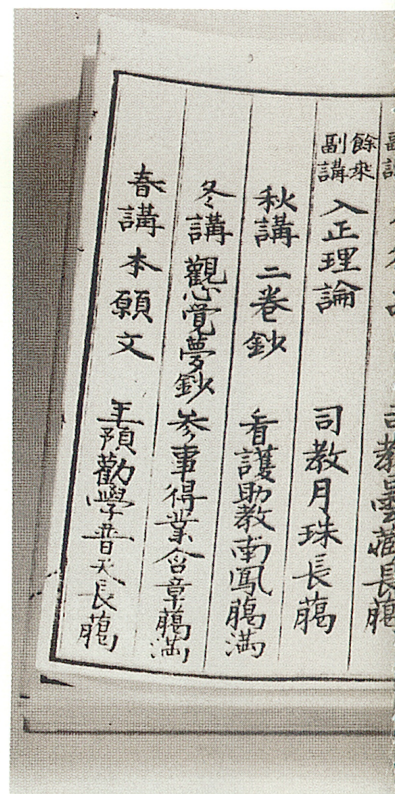 餘乘
副講
入正理論 司教月珠長﨟
秋講 二卷鈔 看護助教南鳳﨟満
冬講 觀心覺夢鈔 参事得業含章﨟満
春講 本願文 預勸學普天長﨟